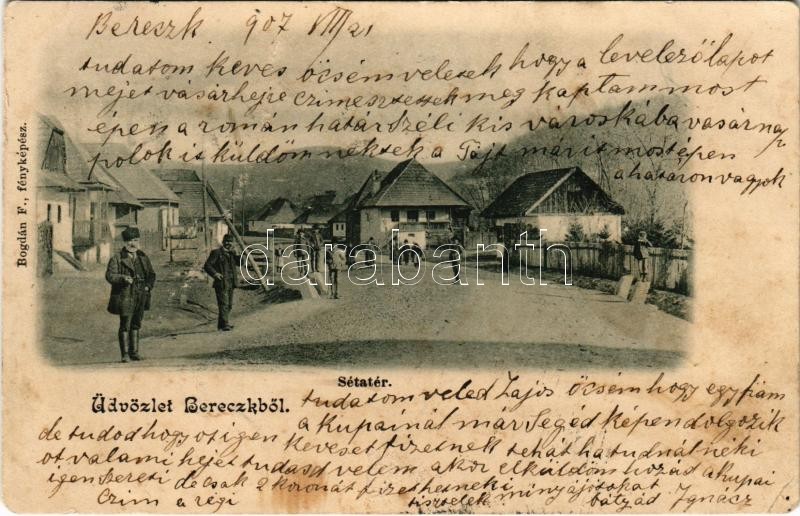 Bereszk 907 VIII/21
tudatom keves öcsém veletek hogy a levelezőlapot
mejet vásárhejre czimeztettek meg kaptam most
épen a román határszéli kis városkába vasárnap
polok it küldöm nektek a Tájt mar is most épen
a határon vagyok
Bogdán F., fényképész.
darabanth
Sétatér.
Üdvözlet Bereczkből.
tudatom veled Lajos öcsém hogy egy fiam
a Kupainál már Segéd képen dolgozik
de tudod hogy ot igen keveset fizetnek tehát ha tudnál néki
ot valami hejet tudasd velem akor elküldöm hozád a kupai
igen szereti de csak 2 koronát fizet hetneki
czim a régi tisztelek minyájotokat bátyád Ignácz